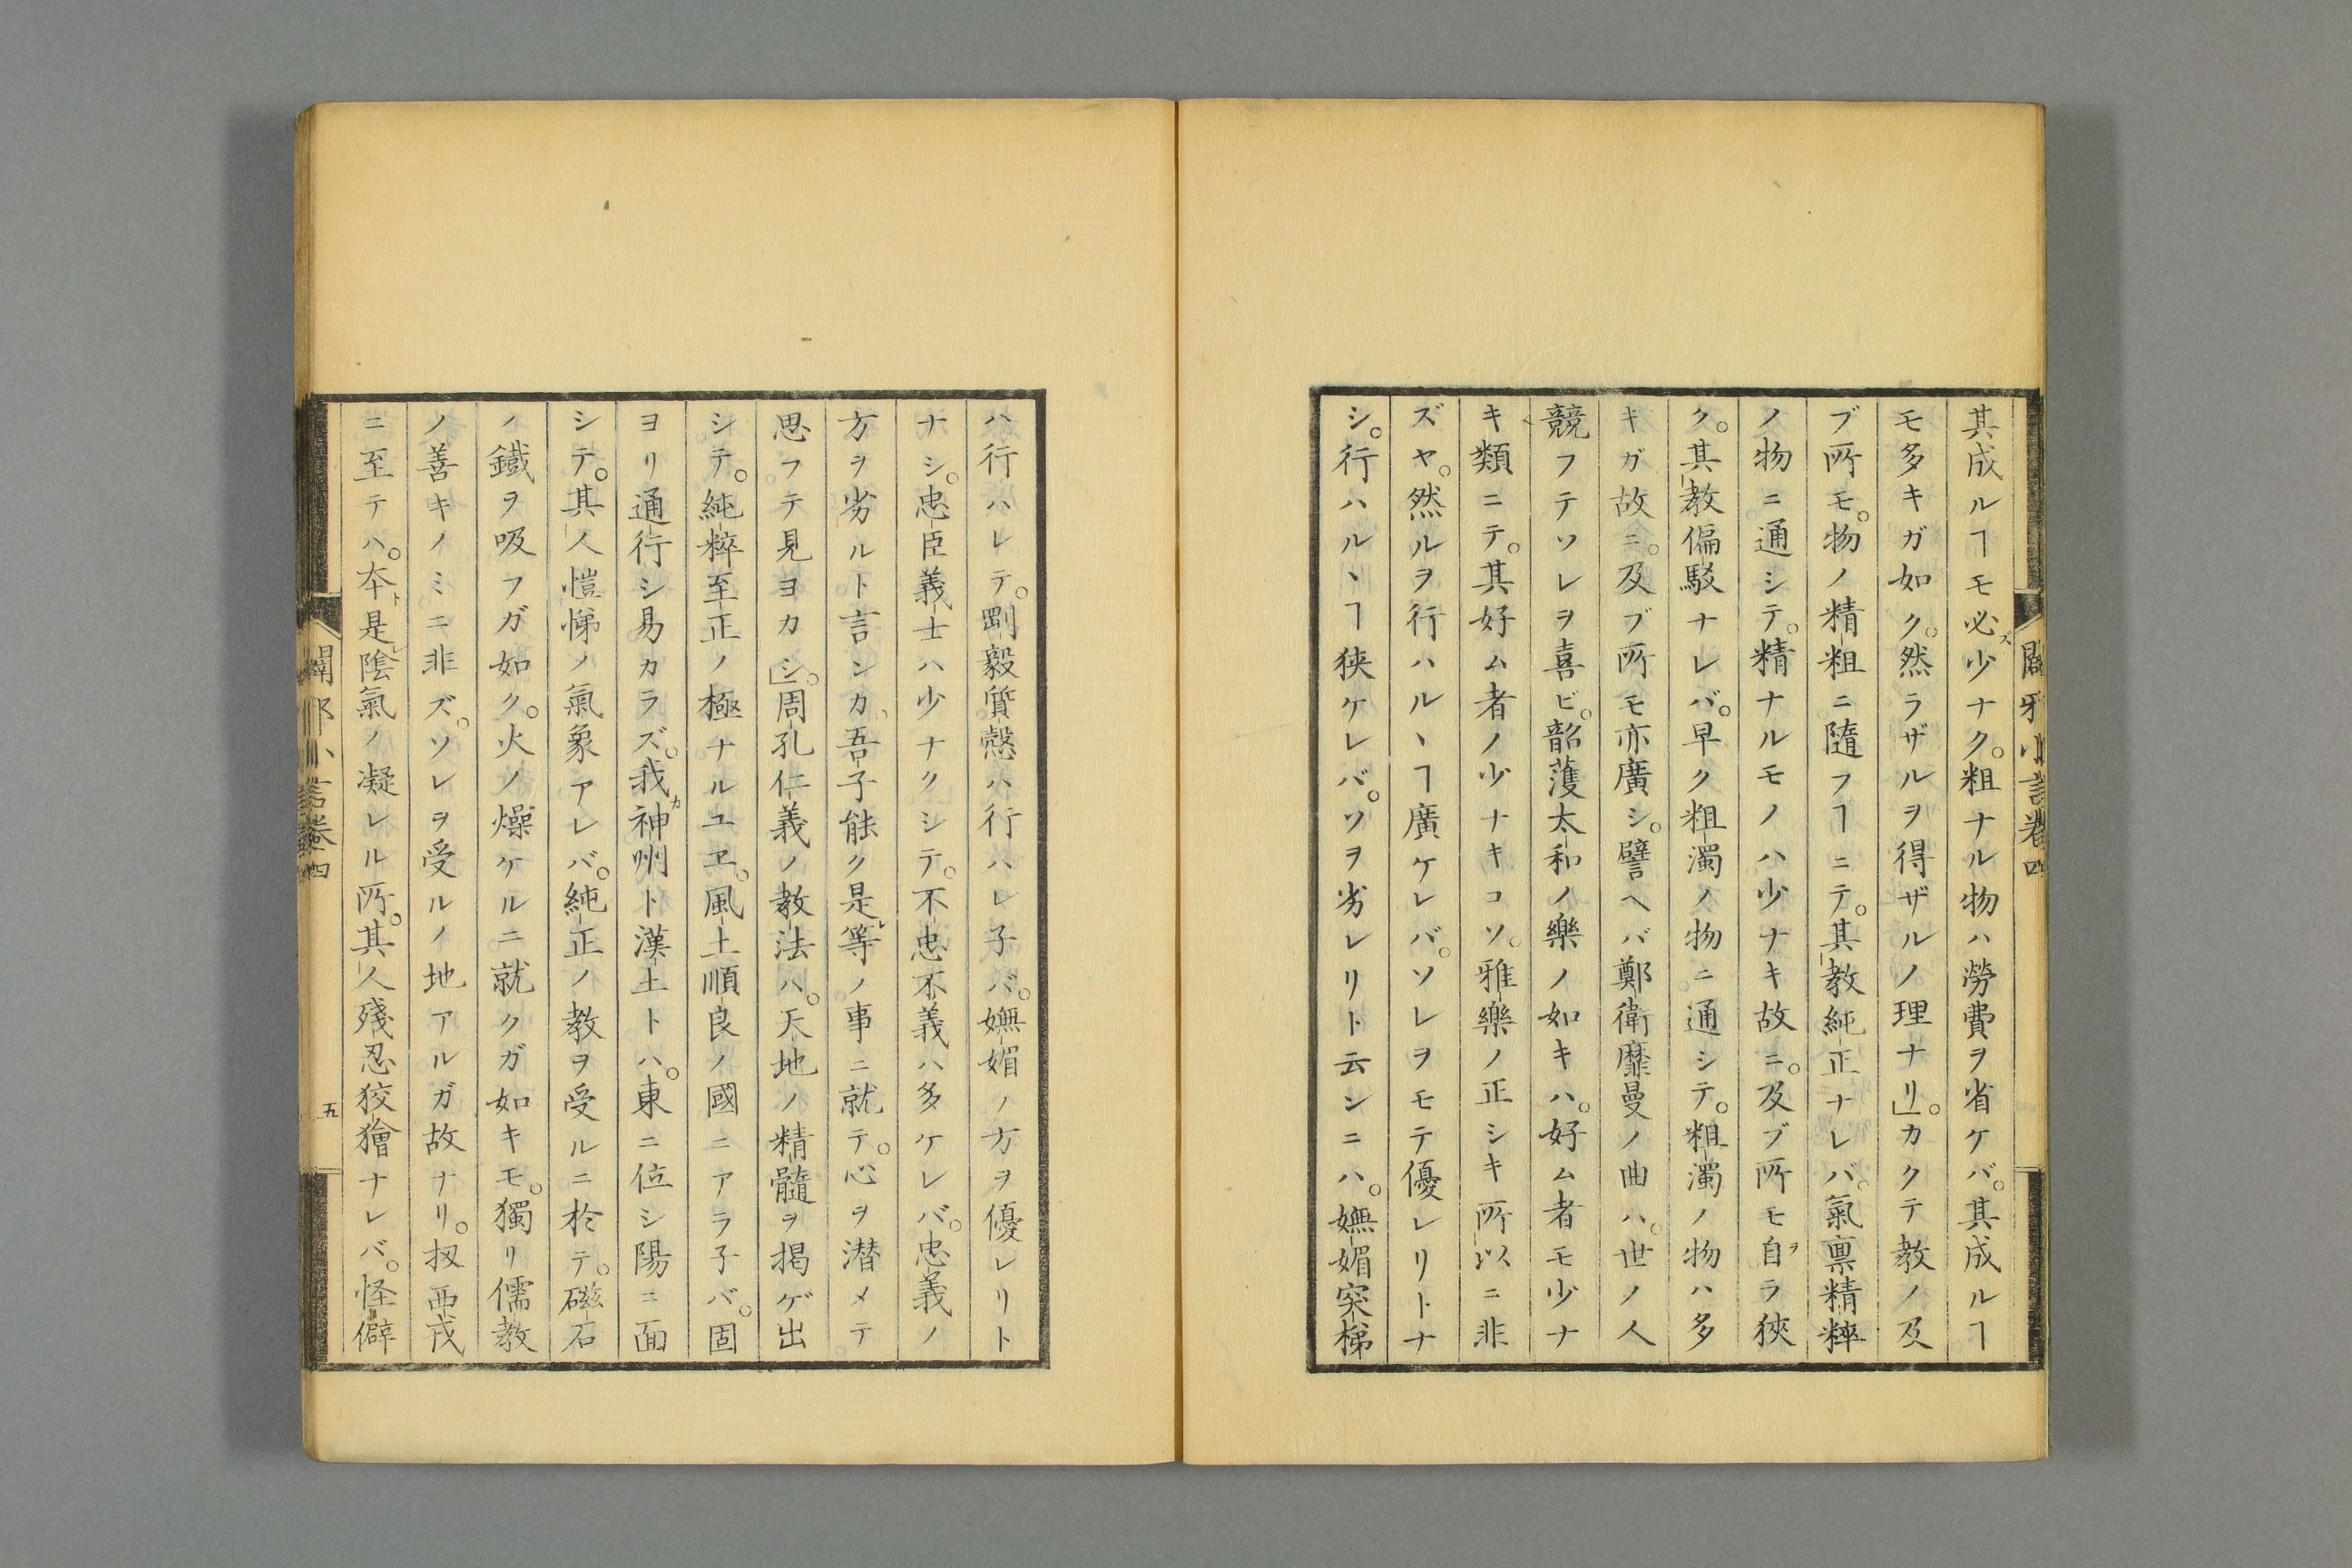 闢邪小言卷四
其成ルヿモ必ズ少ナク。粗ナル物ハ勞費ヲ省ケバ。其成ルヿ
モ多キガ如ク。然ラザルヲ得ザルノ理ナリ」。カクテ教ノ及
ブ所モ。物ノ精粗ニ隨フヿニテ。其教純正ナレバ。氣稟精粹
ノ物ニ通シテ。精ナルモノハ少ナキ故ニ。及ブ所モ自ラ狹
ク。其教偏駁ナレバ。早ク粗濁ノ物ニ通シテ。粗濁ノ物ハ多
キガ故ニ。及ブ所モ亦廣シ。譬ヘバ鄭衛靡曼ノ曲ハ。世ノ人
競フテソレヲ喜ビ。韶頀太和ノ樂ノ如キハ。好ム者モ少ナ
キ類ニテ。其好ム者ノ少ナキコソ。雅樂ノ正シキ所以ニ非
ズヤ。然ルヲ行ハルヽヿ廣ケレバ。ソレヲモテ優レリトナ
シ。行ハルヽヿ狹ケレバ。ソヲ劣レリト云ンニハ。嫵媚突梯
ハ行ハレテ。剛毅質愨ハ行ハレ子バ。嫵媚ノ方ヲ優レリト
ナシ。忠臣義士ハ少ナクシテ。不忠不義ハ多ケレバ。忠義ノ
方ヲ劣ルト言ンカ。吾子能ク是レ等ノ事ニ就テ。心ヲ潜メテ
思フテ見ヨカシ」。周孔仁義ノ教法ハ。天地ノ精髓ヲ掲ゲ出
シテ。純粹至正ノ極ナルユヱ。風土順良ノ國ニアラ子バ。固
ヨリ通行シ易カラズ。我カ神州ト漢土トハ。東ニ位シ陽ニ面
シテ。其人愷悌ノ氣象アレバ。純正ノ教ヲ受ルニ於テ。磁石
ノ鐵ヲ吸フガ如ク。火ノ燥ケルニ就クガ如キモ。獨リ儒教
ノ善キノミニ非ズ。ソレヲ受ルノ地アルガ故ナリ。扨西戎
ニ至テハ。本ト是レ陰氣ノ凝レル所。其人殘忍狡獪ナレバ。怪僻
闢邪小言卷四
五